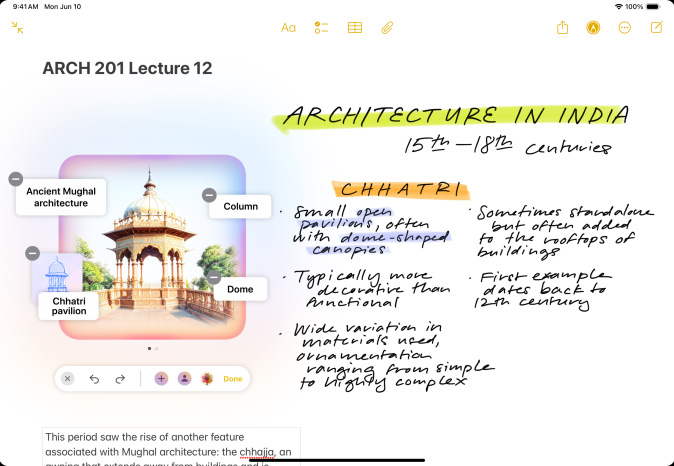 9:41 AM Mon Jun 10
100%
Aa
ARCH 201 Lecture 12
ARCHITECTURE IN INDIA
15th – 18th centuries
Ancient Mughal
architecture
Column
Chhatri
pavilion
Dome
Done
CHHATRI
· Small open
pavilions, often
with dome-shaped
canopies
· Typically more
decorative than
functional
· Wide variation in
materials used,
ornamentation
ranging from simple
to highly complex
· Sometimes standalone
but often added
to the rooftops of
buildings
· First example
dates back to
12th century
This period saw the rise of another feature
associated with Mughal architecture: the chhajja, an
awning that extends away from buildings and is